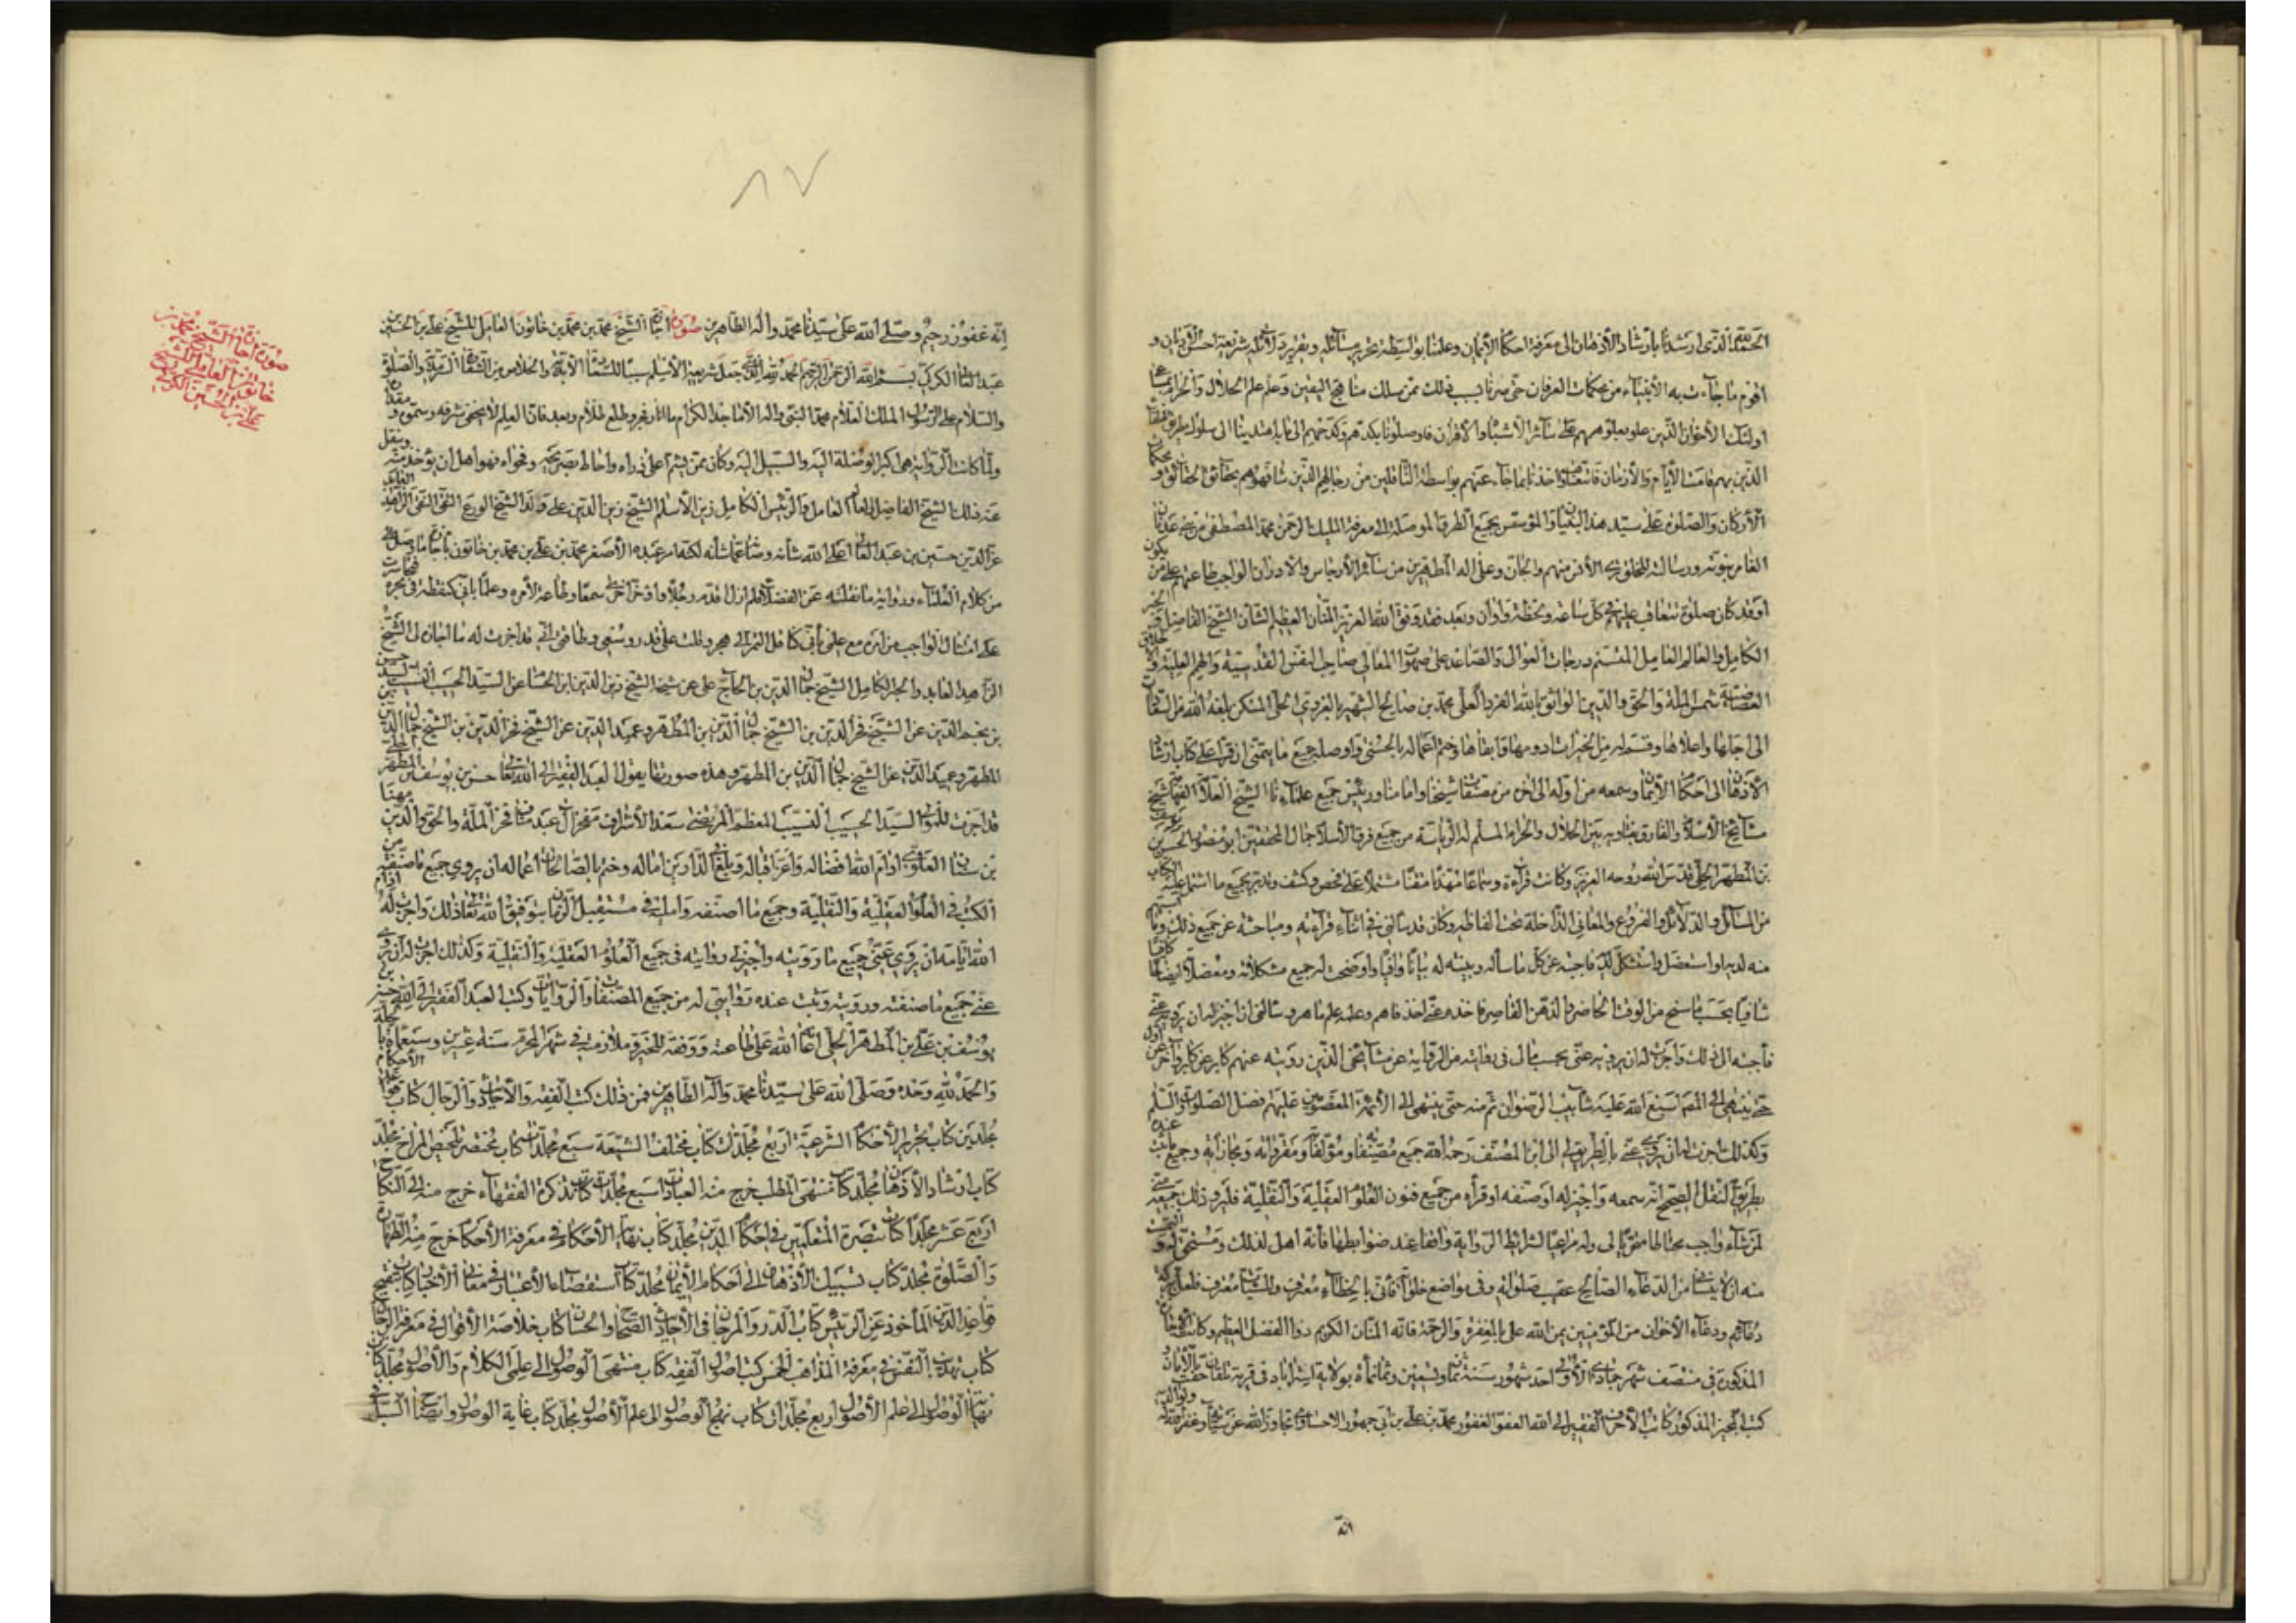 الحمد لله الذي ارشدنا بارشاد الأذهان الى معرفة احكام الأيمان وعلمنا بواسطة تحرير مسائله وتقرير دلائله شريعة احسن الأديان و
اقوم ما جاءت به الأنبياء من محكمات العرفان حتى صرنا بسبب ذلك ممن سلك مناهج اليقين وعلم علم الحلال والحرام
اولئك الأخوان الذين علو بعلومهم على سائر الأشباه والأقران فاوصلونا بكدهم وكدحهم الى ما به اهتدينا الى سلوك طريق
الذين بهم قامت الأيام والأزمان واخذنا بما جاء عنهم بواسطة الناقلين من رجالهم الذين شافهوهم بحقائق الحقائق و
الأركان والصلوة على سيد هذا البنيان والمؤسس لجميع الطرق الموصلة الى معرفة الملك الرحمن محمد المصطفى من عدنان
الغامر بنبوته ورسالته للخلق الأنس منهم والجان وعلى اله المطهرين من سائر الأرجاس والأدران الواجب طاعتهم على من يكون
او قد كان صلوة تتعاقب عليهم كل ساعة ولحظة واوان وبعد فقد وفق الله العزيز المنان العظيم الشان الشيخ الفاضل
الكامل والعالم العامل المتسنم درجات العوالى والصاعد على صهوات المعالى صاحب النفس القدسية والهمم العلية و
شمس الملة والحق والدين الواثق بالله الفرد العلى محمد بن صالح الشهير بالغروى الحلى المسكن بلغه الله من
الى اجلها واعلاها وقسم له من الخيرات وختم اعماله بالحسنى واوصله جميع ما يتمنى ان قرأ على كتاب ارشاد
الأذهان الى احكام الأيمان وسمعه من اوله الى اخره من مصنفات شيخنا وامامنا ورئيس جميع علمائنا الشيخ العلامة
مشايخ الأسلام والفارق بفتاويه بين الحلال والحرام المسلم له الرياسة من جميع فرق الأسلام جمال المحققين ابو منصور الحسن بن يوسف
بن المطهر الحلى قدس الله روحه العزيز وكانت قراءة وسماعا مهذبا متقنا مشتملا على فحص وكشف وتدبر لجميع ما اشتمل عليه الكتاب
من المسائل والدلائل والفروع والمعانى الداخلة تحت الفاظه وكان قد سألنى فى اثناء قرائته ومباحثه عن جميع ذلك
منه لديه او استعضل واستشكل لديه فاجبته عن كل ما سأله وبينته له بيانا وافيا واوضحت له جميع مشكلاته ومعضلاته ايضاحا كافيا
شافيا بحسب ما سنح من الوقت الحاضر والذهن القاصر فاخذه عنى اخذ فاهم وعلمه علم ماهر وسألنى ان اجيز له ان يرويه عنى
فأجبته الى ذلك واجزت له ان يرويه عنى بحسب مالى فى روايته من الرواية عن مشايخى الذين رويته عنهم كابر عن كابر
حتى ينتهى الى المصنف اسبغ الله عليه شآبيب الرضوان ثم منه حتى ينتهى الى الأئمة المعصومين عليهم افضل الصلوات والسلم
وكذلك اجزت له ان يروى عنى بالطريق لى الى ابن المصنف رحمه الله جميع مصنفاته ومؤلفاته ومقرواته ومجازاته وجميع
بطريق النقل الصحيح انه سمعه واجيز له او صنفه او قرأه من جميع فنون العلوم العقلية والنقلية فليرو ذلك جميعه
لمن شاء واحب محتاطا متحريا لى وله مراعيا لشرائط الرواية واقفا عند ضوابطها فانه اهل لذلك ومستحق له و
منه ان لا ينسانى من الدعاء الصالح عقيب صلواته وفى مواضع خلواته فانى بالخطاء معترف وللسيئات مقترف
دعائه ودعاء الأخوان من المؤمنين يمن الله على بالمغفرة والرحمة فانه المنان الكريم ذوا الفضل العظيم وكانت
المذكورة فى منتصف شهر جمادى الأولى احد شهور سنة ثمان وتسعين وثمانمأة بولاية استراباد فى قرية
كتب المجيز المذكور الفقير الى الله العفو الغفور محمد بن على بن ابى جمهور الاحساوى تجاوز الله عن سيئاته وغفر الله له ولوالديه
انه
انه غفور رحيم وصلى الله على سيدنا محمد واله الطاهرين صورة اجازة الشيخ محمد بن محمد بن خاتون العاملى للشيخ على بن الحسين بن
عبد العالى الكركى بسم الله الرحمن الرحيم الحمد لله الذى جعل شريعة الأسلم سببا للسعادة الأبدية والخلاص من الشقاوة السرمدية والصلوة
والسلام على الرسول الملك العلام محمد النبى واله الأماجد الكرام ما انار فجر وطلع ظلام وبعد فان العلم لا يخفى شرفه وسموه و
ولما كانت الرواية هى اكبر الوصلة اليه والسبيل اليه وكان ممن تسنم اعلى ذراه واحاط بصريحه وفحواه فهو اهل ان يؤخذ منه وينقل
عنه ذلك الشيخ الفاضل العالم العامل والرئيس الكامل زين الأسلم الشيخ زين الدين على ولد الشيخ الورع التقى النقى الزاهد العابد
عز الدين حسين بن عبد العالى اعلى الله شانه وصانه عما شانه لكنه امر عبده الأصغر محمد بن على بن محمد بن خاتون
من كلام العلماء ورواية ما نقلته عن الفضلاء فلم ازل اقدم رجلا واؤخر اخرى سمعا وطاعة لأمره وعلما بانى كنقطة فى بحره
على امتثال الواجب من امره مع علمى بأنى كناقل التمر الى هجر وذلك على قدر وسعى وطاقتى انى قد اجزت له ما اجاز لى الشيخ
الزاهد العابد والحبر الكامل الشيخ جمال الدين بن الحاج على عن شيخه الشيخ زين الدين ابن الحسام عن السيد الحسيب النسيب السيد حسن
بن نجم الدين عن الشيخ فخر الدين بن الشيخ جمال الدين بن المطهر وعميد الدين عن الشيخ فخر الدين بن الشيخ جمال الدين
المطهر وعميد الدين عن الشيخ جمال الدين بن المطهر وهذه صورتها يقول العبد الفقير الى الله تعالى حسن بن يوسف بن المطهر الحلى
قد اجزت للمولى السيد الحسيب النسيب المعظم المرتضى سعد الأشراف مفخر آل عبد مناف فخر الملة والحق والدين مهنا
بن سنان العلوى ادام الله افضاله واعز اقباله وبلغه فى الدارين اماله وختم بالصالحات اعماله ان يروى جميع ما صنفته من
الكتب فى العلوم العقلية والنقلية وجميع ما اصنفه واملیه فى مستقبل الزمان بتوفيق الله تعالى ذلك واجزت له ادام
الله ايامه ان يروى عنى جميع ما رويته واجيز لى روايته فى جميع العلوم العقلية والنقلية وكذلك اجزت له ان يروى
عنى جميع ما صنفته ورويته وثبت عنده روايتى له من جميع المصنفات والروايات وكتب العبد الفقير الى الله حسن بن
يوسف بن على بن المطهر الحلى اعانه الله على طاعته ووفقه للخير وملازمته فى شهر المحرم سنة عشرين وسبعمأة بالحلة
والحمد لله وحده وصلى الله على سيدنا محمد واله الطاهرين فمن ذلك كتب الفقه والأحاديث والرجال كتاب قواعد الأحكام
مجلدين كتاب تحرير الأحكام الشرعية اربع مجلدات كتاب مختلف الشيعة سبع مجلدات كتاب مختصر تلخيص المرام مجلد
كتاب ارشاد الأذهان مجلد كتاب منتهى المطلب خرج منه العبادات سبع مجلدات كتاب تذكرة الفقهاء خرج منه الى النكاح
اربع عشر مجلدا كتاب تبصرة المتعلمين فى احكام الدين مجلد كتاب نهاية الأحكام فى معرفة الأحكام خرج منه الطهارة
والصلوة مجلد كتاب تسبيل الأذهان الى احكام الأيمان مجلد كتاب استقصاء الأعتبار فى معانى الأخبار كتاب تنقيح
قواعد الدين المأخوذ عن آل يس كتاب الدر والمرجان فى الأحاديث الصحاح والحسان كتاب خلاصة الأقوال فى معرفة الرجال
كتاب تهذيب النفس فى معرفة المذاهب الخمس كتب اصول الفقه كتاب منتهى الوصول الى علمى الكلام والأصول مجلد كتاب
نهاية الوصول الى علم الأصول اربع مجلدات كتاب نهج الوصول الى علم الأصول مجلد كتاب غاية الوصول وايضاح السبل
صورة اجازة الشيخ محمد بن
خاتون العاملى للشيخ
على بن الحسين الكركى
٨٧